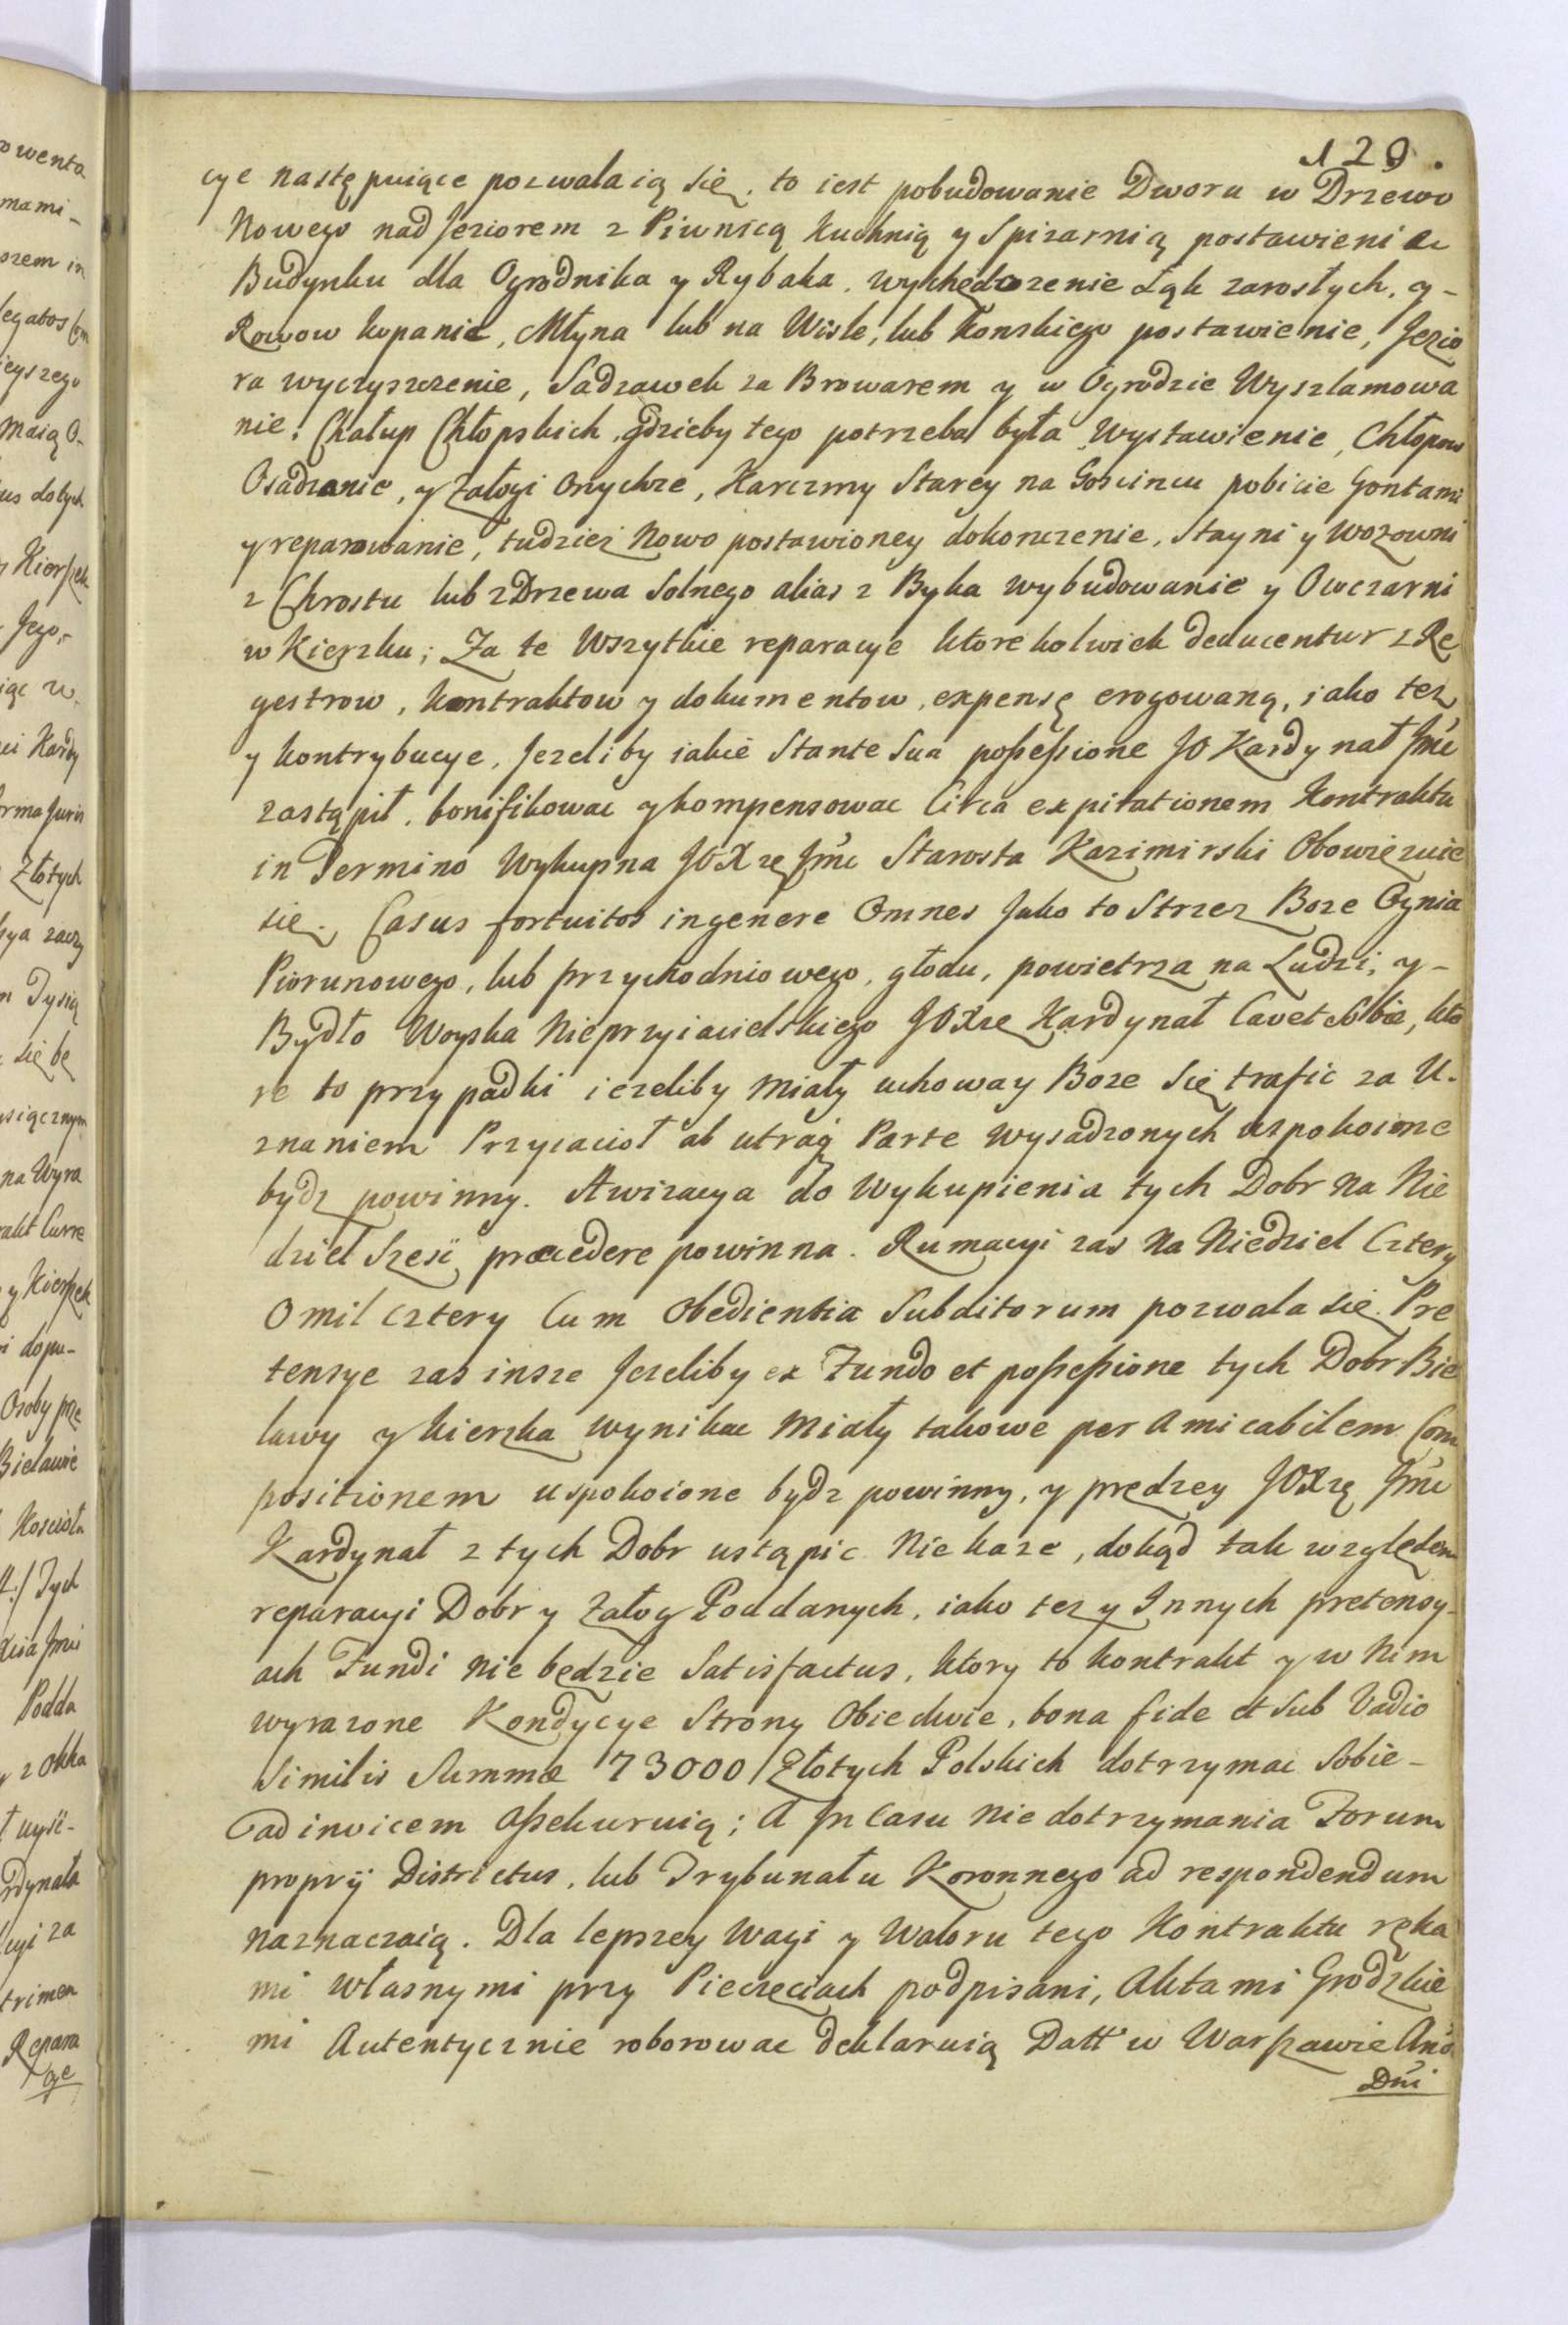 129.
cye następuiące pozwalaią się, to iest pobudowanie Dworu w Drzewo
Nowego nad Jeziorem z Piwnicą Kuchnią y Spizarnią postawienie
Budynku dla Ogrodnika y Rybaka, wychędozenie Łąk zarosłych, y -
Rowow kopanie, Młyna lub na Wisle, lub Konskiego postawienie, Jezio
ra wyczyszczenie, Sadzawek za Browarem y w Ogrodzie Wyszlamowa
nie, Chałup Chłopskich, gdzieby tego potrzeba była Wystawienie, Chłopow
Osadzanie, y Załogi onychze, Karczmy Starey na Goscincu pobicie Gontami
y reparowanie, tudziez Nowo postawioney dokonczenie, Stayni y Wozowni
z Chrostu lub z Drzewa Solnego alias z Byka wybudowanie y Owczarni
w Kierzku; Za te Wszytkie reparacye ktorekolwiek deducentur z Re
gestrow, Kontraktow y dokumentow, expensę erogowaną, iako tez
y kontrybucye, Jezeliby iakie Stante Sua possessione JO Kardynał Jmc
zastąpił, bonifikowac y kompensowac Circa expirationem Kontraktu
in Termino Wykupna JOXzę Jmc Starosta Kazimirski Obowięzuie
się. Casus fortuitos in genere Omnes Jako to Strzez Boze Ognia
Piorunowego, lub przychodniowego, głodu, powietrza na Ludzi, y -
Bydło Woyska Nieprzyiacielskiego JOXze Kardynał Cavet Sobie, kto
re to przypadki iezeliby miały uchoway Boze Się trafic za U-
znaniem Przyiacioł ab utraq Parte wysadzonych uspokoione
bydz powinny. Awizacya do Wykupienia tych Dobr na Nie
dziel Szesc praecedere powinna. Rumacyi zas na Niedziel Cztery
O mil cztery Cum Obedientia Subditorum pozwala się. Pre
tensye zas insze Jezeliby ex Fundo et possessione tych Dobr Bie
lawy y Kierzka wynikac miały takowe per Amicabilem Com
positionem uspokoione bydz powinny, y prędzey JOXzę Jmc
Kardynał z tych Dobr ustąpic Nie kaze, dokąd tak względem
reparacyi Dobr y Załog Poddanych, iako tez y Innych pretensy-
ach Fundi nie będzie Satisfactus, ktory to kontrakt y w Nim
wyrazone Kondycye Strony Obiedwie, bona fide et Sub Vadio
Similis Summæ 73000 Złotych Polskich dotrzymac Sobie -
ad invicem Assekuruią; A In Casu nie dotrzymania Forum
proprij Districtus, lub Trybunału Koronnego ad respondendum
naznaczaią. Dla lepszey Wagi y Waloru tego Kontraktu ręka
mi własnymi przy Pieczęciach podpisani, Aktami Grodzkie
mi Autentycznie roborowac deklaruią Datt w Warszawie Ano
Dni